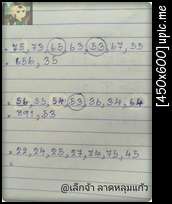 75,73,65,63,53,67,35
= 656,35
56,35,54,53,36,34,64
= 391,53
22,24,25,27,72,74,45
=
@เล็กจ๋า ลาดหลุมแก้ว
[450x600] upic.me